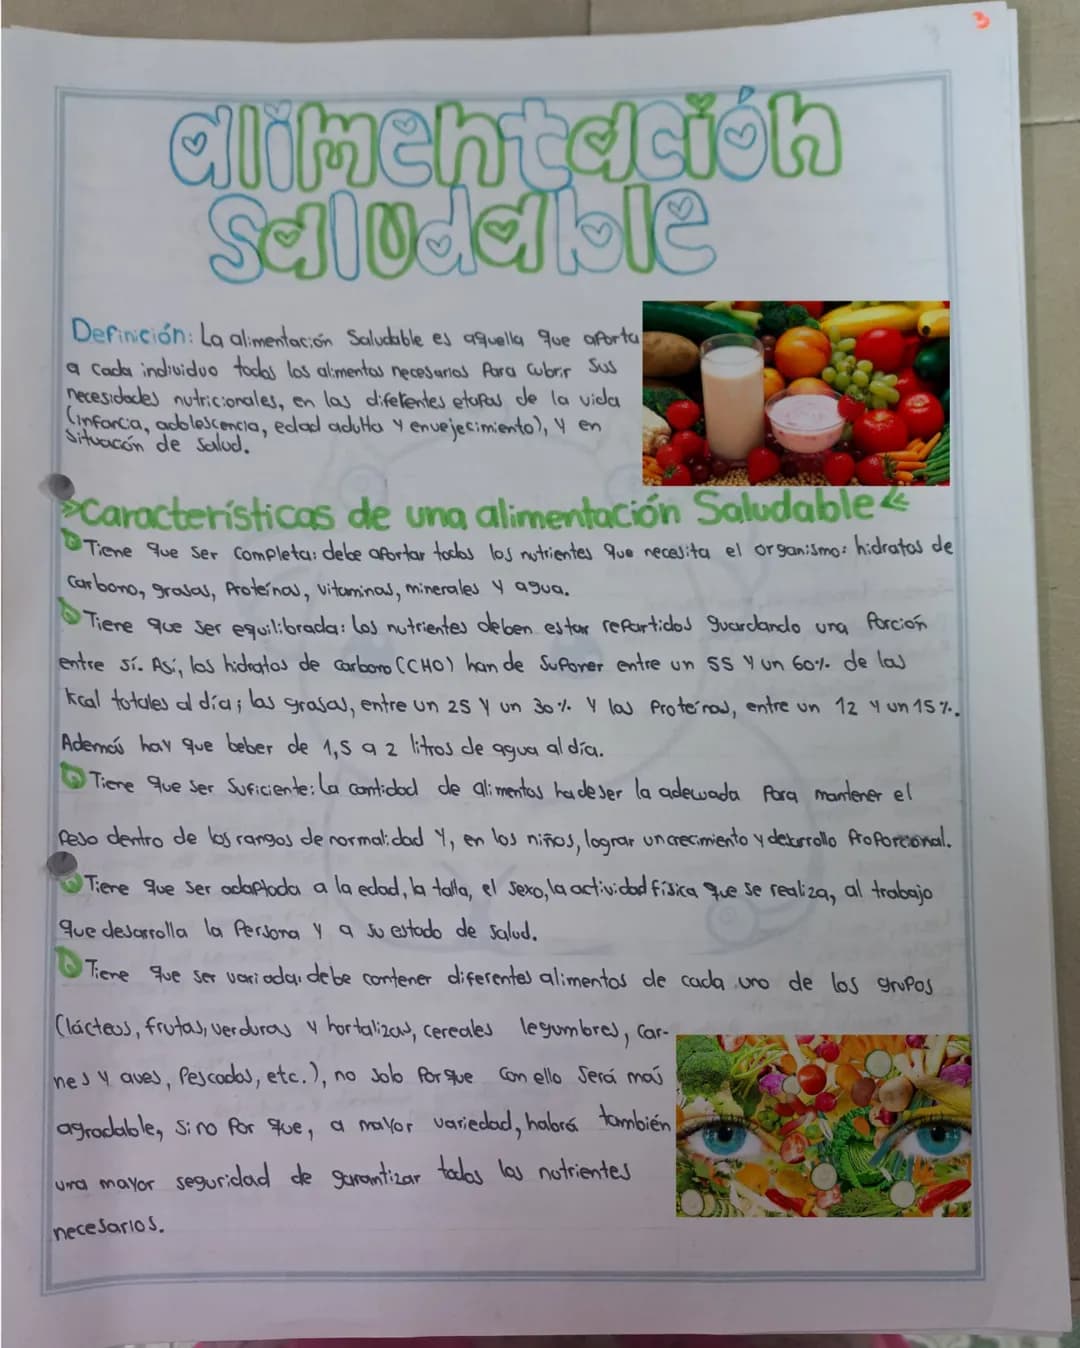 3
alimentación
saludable
Definición: La alimentación Saludable es aquella que aporta
a cada individuo todos los alimentos necesarios para cubrir sus
necesidades nutricionales, en las diferentes etapas de la vida
(infancia, adolescencia, edad adulta y envejecimiento), y en
situación de salud.
Características de una alimentación Saludable
Tiene que ser completa: debe aportar todos los nutrientes que necesita el organismo: hidratos de
carbono, grasas, proteínas, vitaminas, minerales y agua.
Tiene que ser equilibrada: los nutrientes deben estar repartidos guardando una porción
entre sí. Así, los hidratos de carbono (CHO) han de suponer entre un 55 y un 60% de las
kcal totales al día; las grasas, entre un 25 y un 30% y las proteínas, entre un 12 y un 15%.
Además hay que beber de 1,5 a 2 litros de agua al día.
Tiene que ser suficiente: la cantidad de alimentos ha de ser la adecuada para mantener el
peso dentro de los rangos de normalidad y, en los niños, lograr un crecimiento y desarrollo proporcional.
Tiene que ser adaptada a la edad, la talla, el sexo, la actividad física que se realiza, al trabajo
que desarrolla la persona y a su estado de salud.
Tiene que ser variada: debe contener diferentes alimentos de cada uno de los grupos
(lácteos, frutas, verduras y hortalizas, cereales legumbres, car-
nes y aves, pescados, etc.), no solo porque con ello será más
agradable, sino por que, a mayor variedad, habrá también
una mayor seguridad de garantizar todos los nutrientes
necesarios.